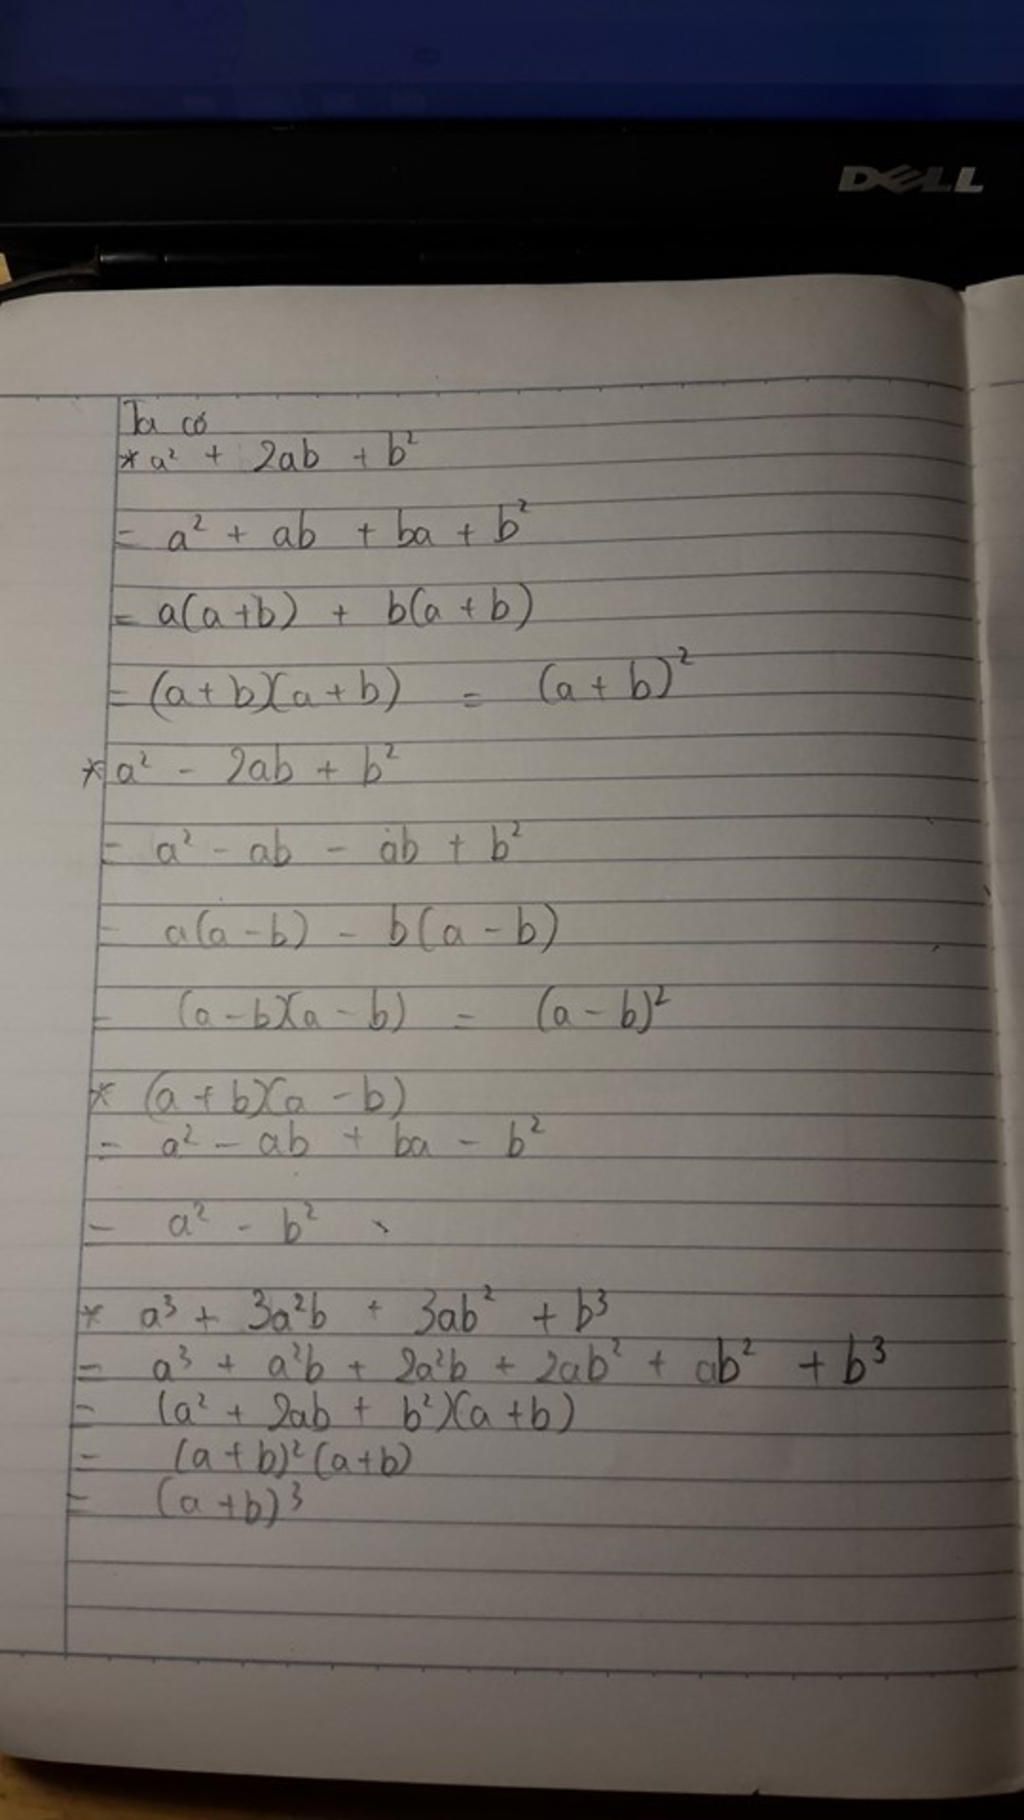 DELL
Ta có
* a² + 2ab + b²
= a² + ab + ba + b²
= a(a+b) + b(a+b)
= (a+b)(a+b) = (a+b)²
* a² - 2ab + b²
= a² - ab - ab + b²
= a(a-b) - b(a-b)
= (a-b)(a-b) = (a-b)²
* (a+b)(a-b)
= a² - ab + ba - b²
= a² - b²
* a³ + 3a²b + 3ab² + b³
= a³ + a²b + 2a²b + 2ab² + ab² + b³
= (a² + 2ab + b²)(a+b)
= (a+b)²(a+b)
= (a+b)³